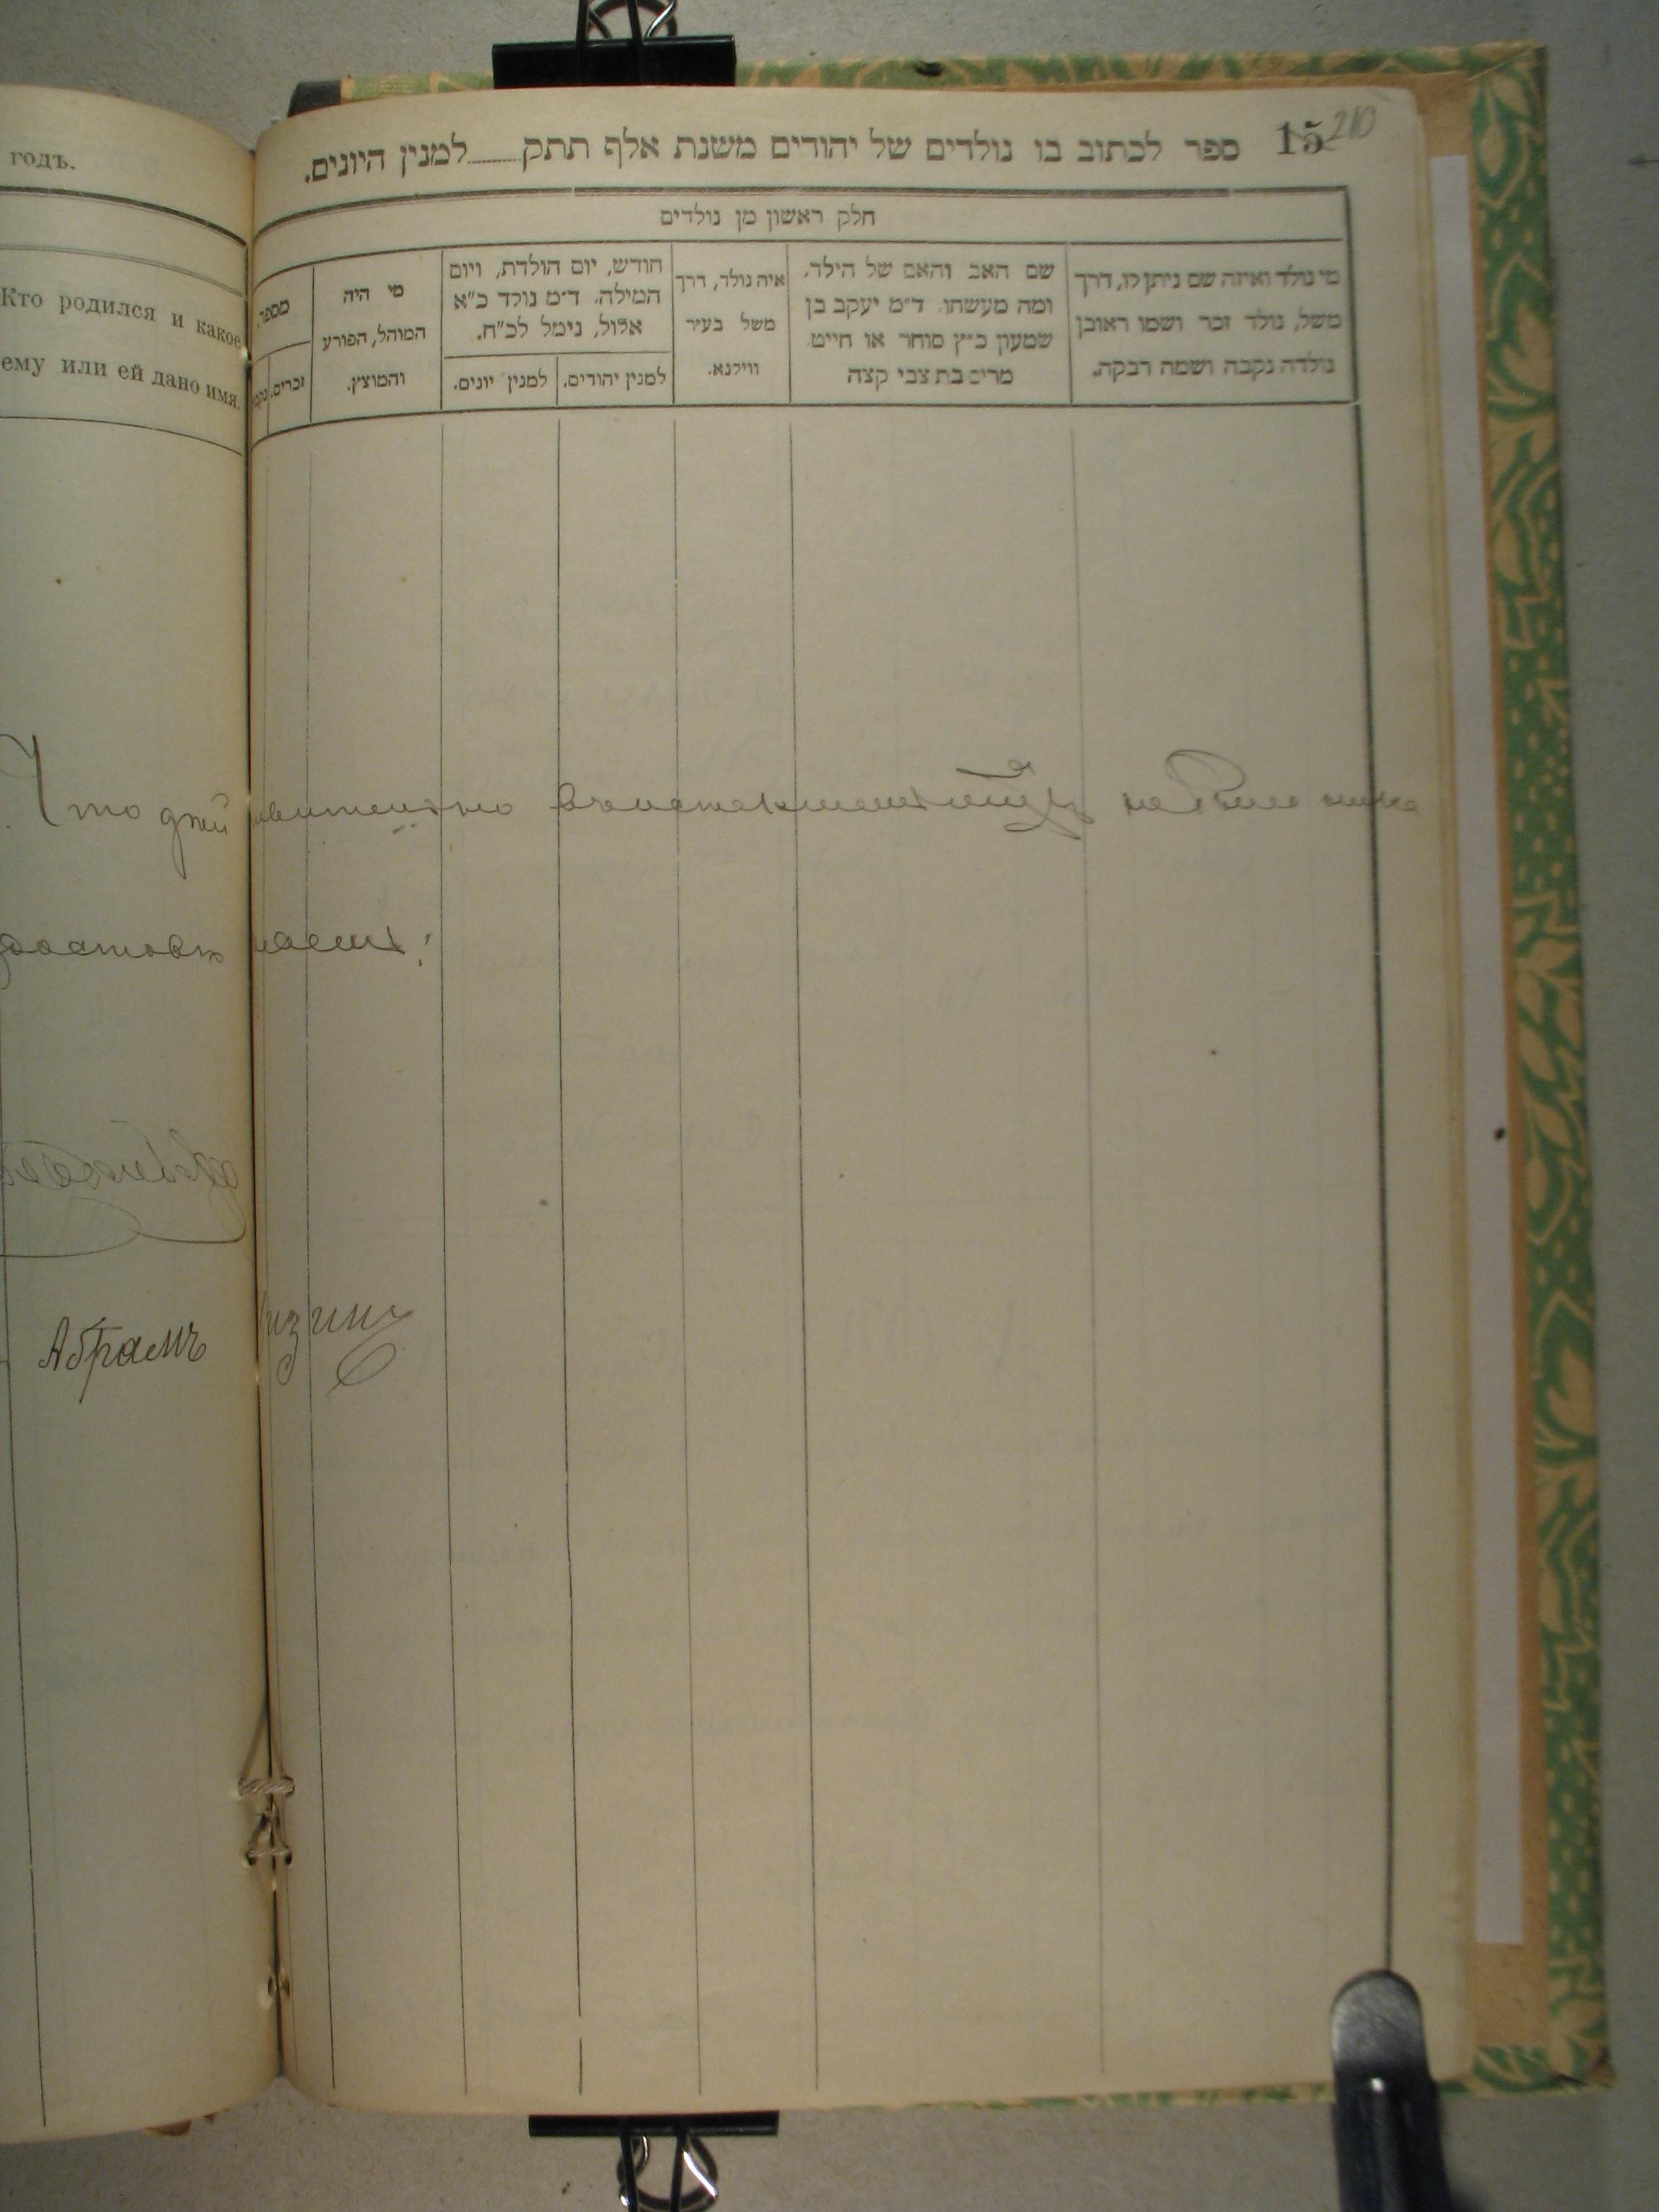 годъ.
Кто родился и какое
ему или ей дано имя.
15 210
ספר לכתוב בו נולדים של יהודים משנת אלף תתק למנין היונים.
חלק ראשון מן נולדים
מי נולד ואיזה שם ניתן לו, דרך
משל, נולד זכר ושמו ראובן
נולדה נקבה ושמה רבקה.
שם האב והאם של הילד,
ומה מעשהו. ד״מ יעקב בן
שמעון כ״ץ סוחר או חייט
מרים בת צבי קצה
איה נולד, דרך
משל בעיר
ווילנא.
חודש, יום הולדת, ויום
המילה. ד״מ נולד כ״א
אלול, נימל לכ״ח.
למנין יהודים.
למנין יונים.
מי היה
המוהל, הפורע
והמוצץ.
מספר.
זכרים.
Что действительно
удостовѣряемъ:
Абрамъ